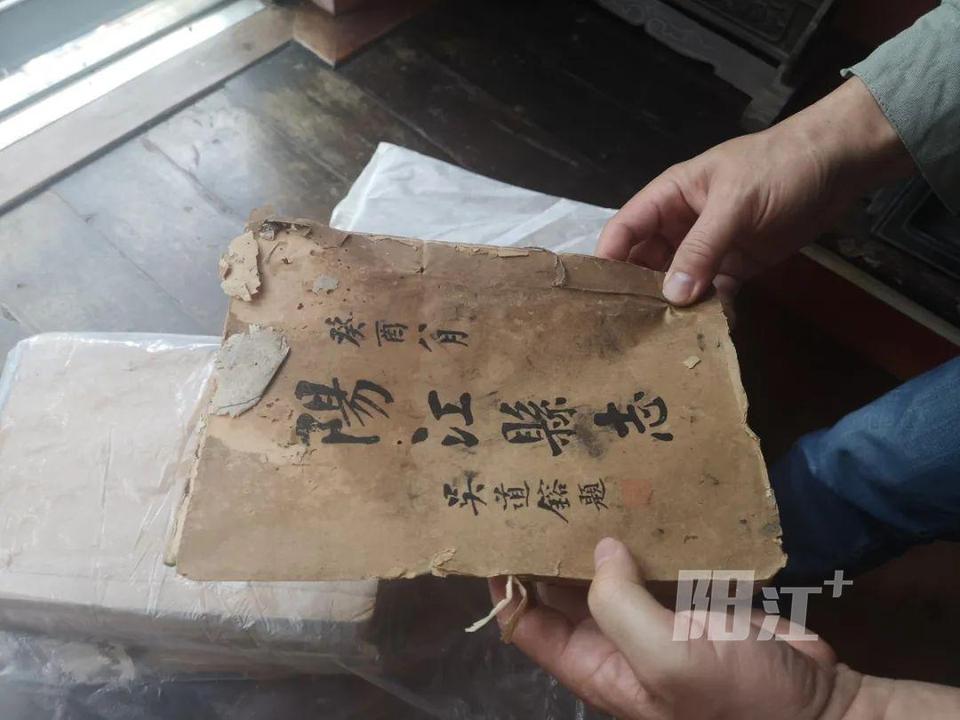 癸酉八月
陽江縣志
吴道鎔題
阳江+